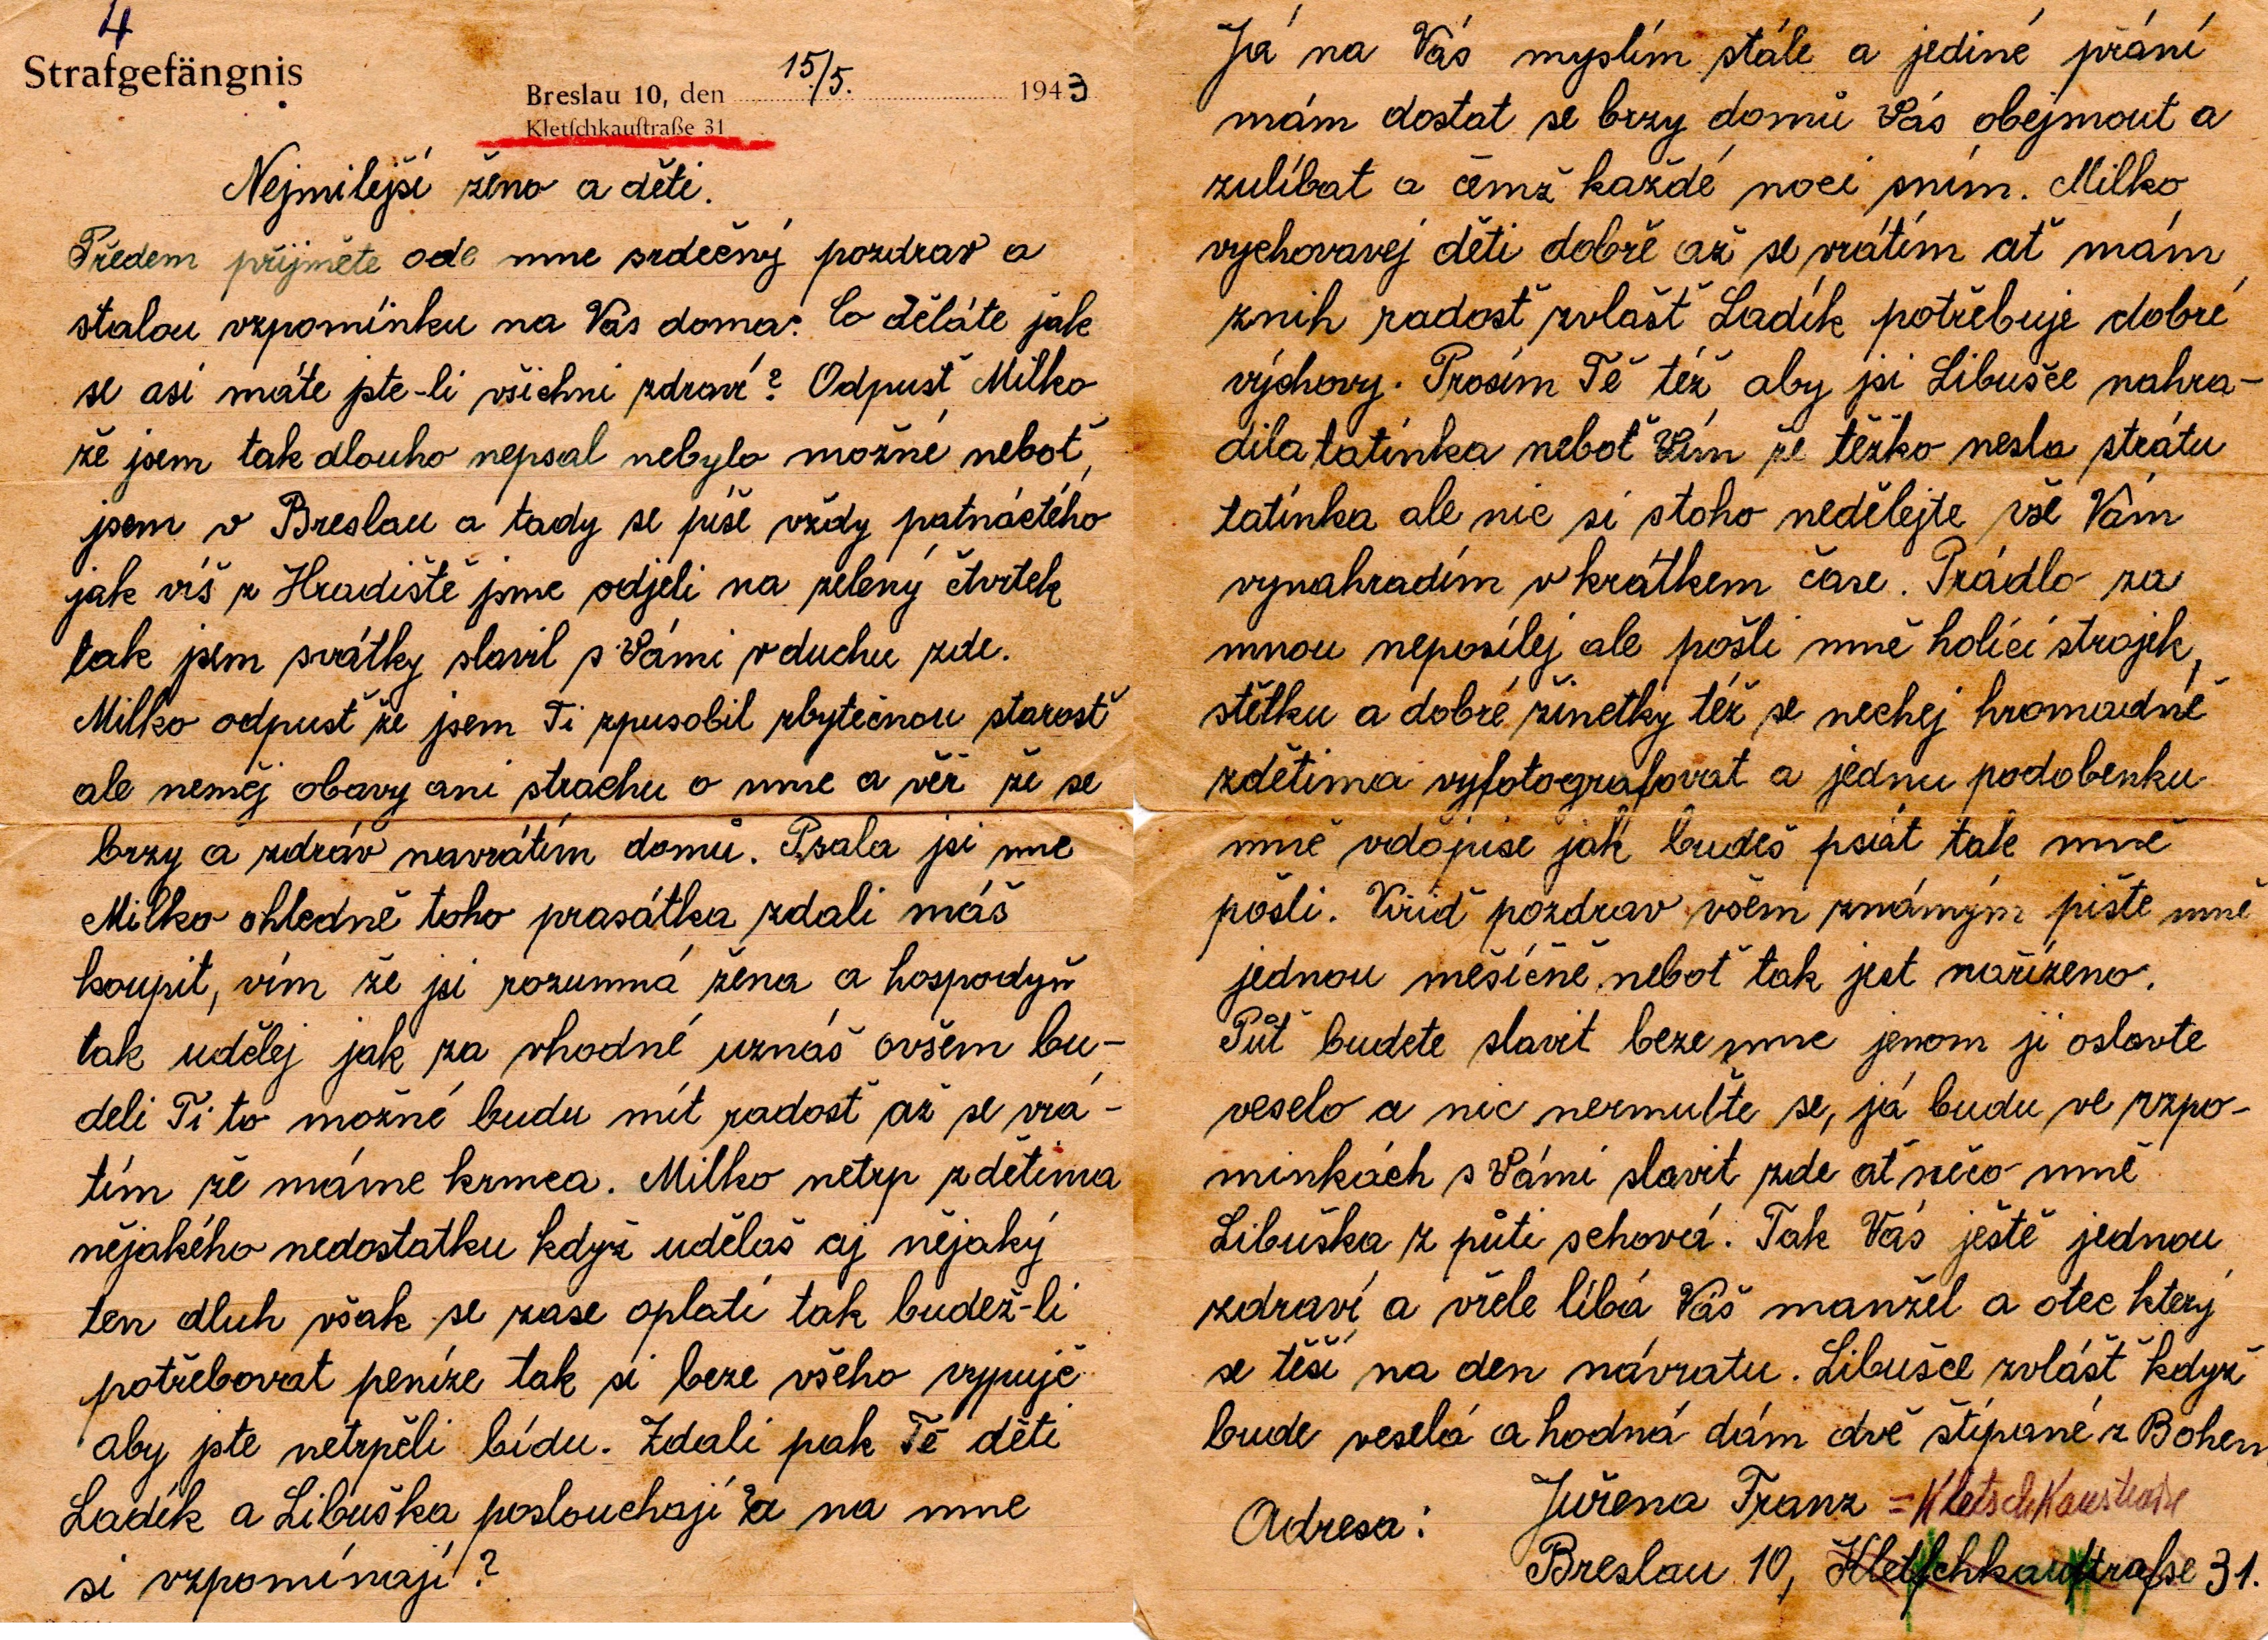 4
Strafgefängnis
Breslau 10, den 15/5. 1943
Kletschkaustraße 31
Nejmilejší ženo a děti.
Předem přijměte ode mne srdečný pozdrav a
stalou vzpomínku na Vás doma. Co děláte jak
se asi máte jste-li všichni zdraví? Odpusť Milko
že jsem tak dlouho nepsal nebylo možné neboť
jsem v Breslau a tady se píše vždy patnáctého
jak víš z Hradiště jsme odjeli na zelený čtvrtek
tak jsem svátky slavil s Vámi v duchu zde.
Milko odpusť že jsem Ti zpusobil zbytečnou starosť
ale neměj obavy ani strachu o mne a věř že se
brzy a zdráv navrátím domů. Psala jsi mne
Milko ohledně toho prasátka zdali máš
koupit, vím že jsi rozumná žena a hospodyň
tak udělej jak za vhodné uznáš ovšem bu-
deli Ti to možné budu mít radosť až se vrá-
tím že máme krmca. Milko netrp z dětima
nějakého nedostatku když uděláš aj nějaký
ten dluh však se zase oplatí tak budež-li
potřebovat peníze tak si beze všeho vypujč
aby jste netrpěli bídu. Zdali pak Tě děti
Ladík a Libuška poslouchají a na mne
si vzpomínají?
Já na Vás myslím stále a jediné přání
mám dostat se brzy domů Vás obejmout a
zulíbat o čemž každé noci sním. Milko
vychovavej děti dobře až se vrátím ať mám
znih radosť zvlášť Ladík potřebuje dobré
výchovy. Prosím Tě též aby jsi Libušce nahra-
dila tatínka neboť Vím že těžko nesla strátu
tatínka ale nic si stoho nedělejte vše Vám
vynahradím v krátkem čase. Prádlo za
mnou neposílej ale pošli mně holící strojek,
štětku a dobré žinetky též se nechej hromadně
zdětima vyfotografovat a jednu podobenku
mně vdopise jak budeš psát tak mně
pošli. Viřiď pozdrav všem známým pište mně
jednou měsíčně neboť tak jest nařízeno.
Půť budete slavit beze mne jenom ji oslavte
veselo a nic nermuťte se, já budu ve vzpo-
minkách s Vámi slavit zde ať něčo mně
Libuška z půti schová. Tak Vás ještě jednou
zdraví a vřele líbá Váš manžel a otec který
se těší na den návratu. Libušce zvlášť když
bude veselá a hodná dám dvě štípané z Bohem
Adresa: Juřena Franz = Kletschkaustraße
Breslau 10, Kletschkaustraße 31.